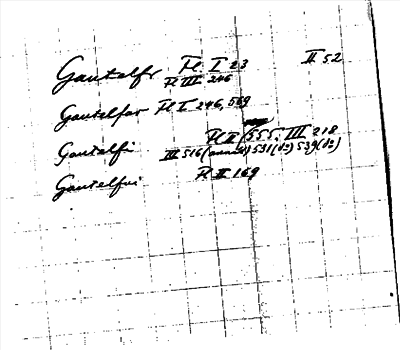 Gautelfr. Fl. I 23 II 52
Fl III 246
Gautelfar Fl I 246, 559
Fl II 555; III 218
Gautelfi III 516 (annal) 531 (do) 539 (do)
Gautelfui Fl II 169